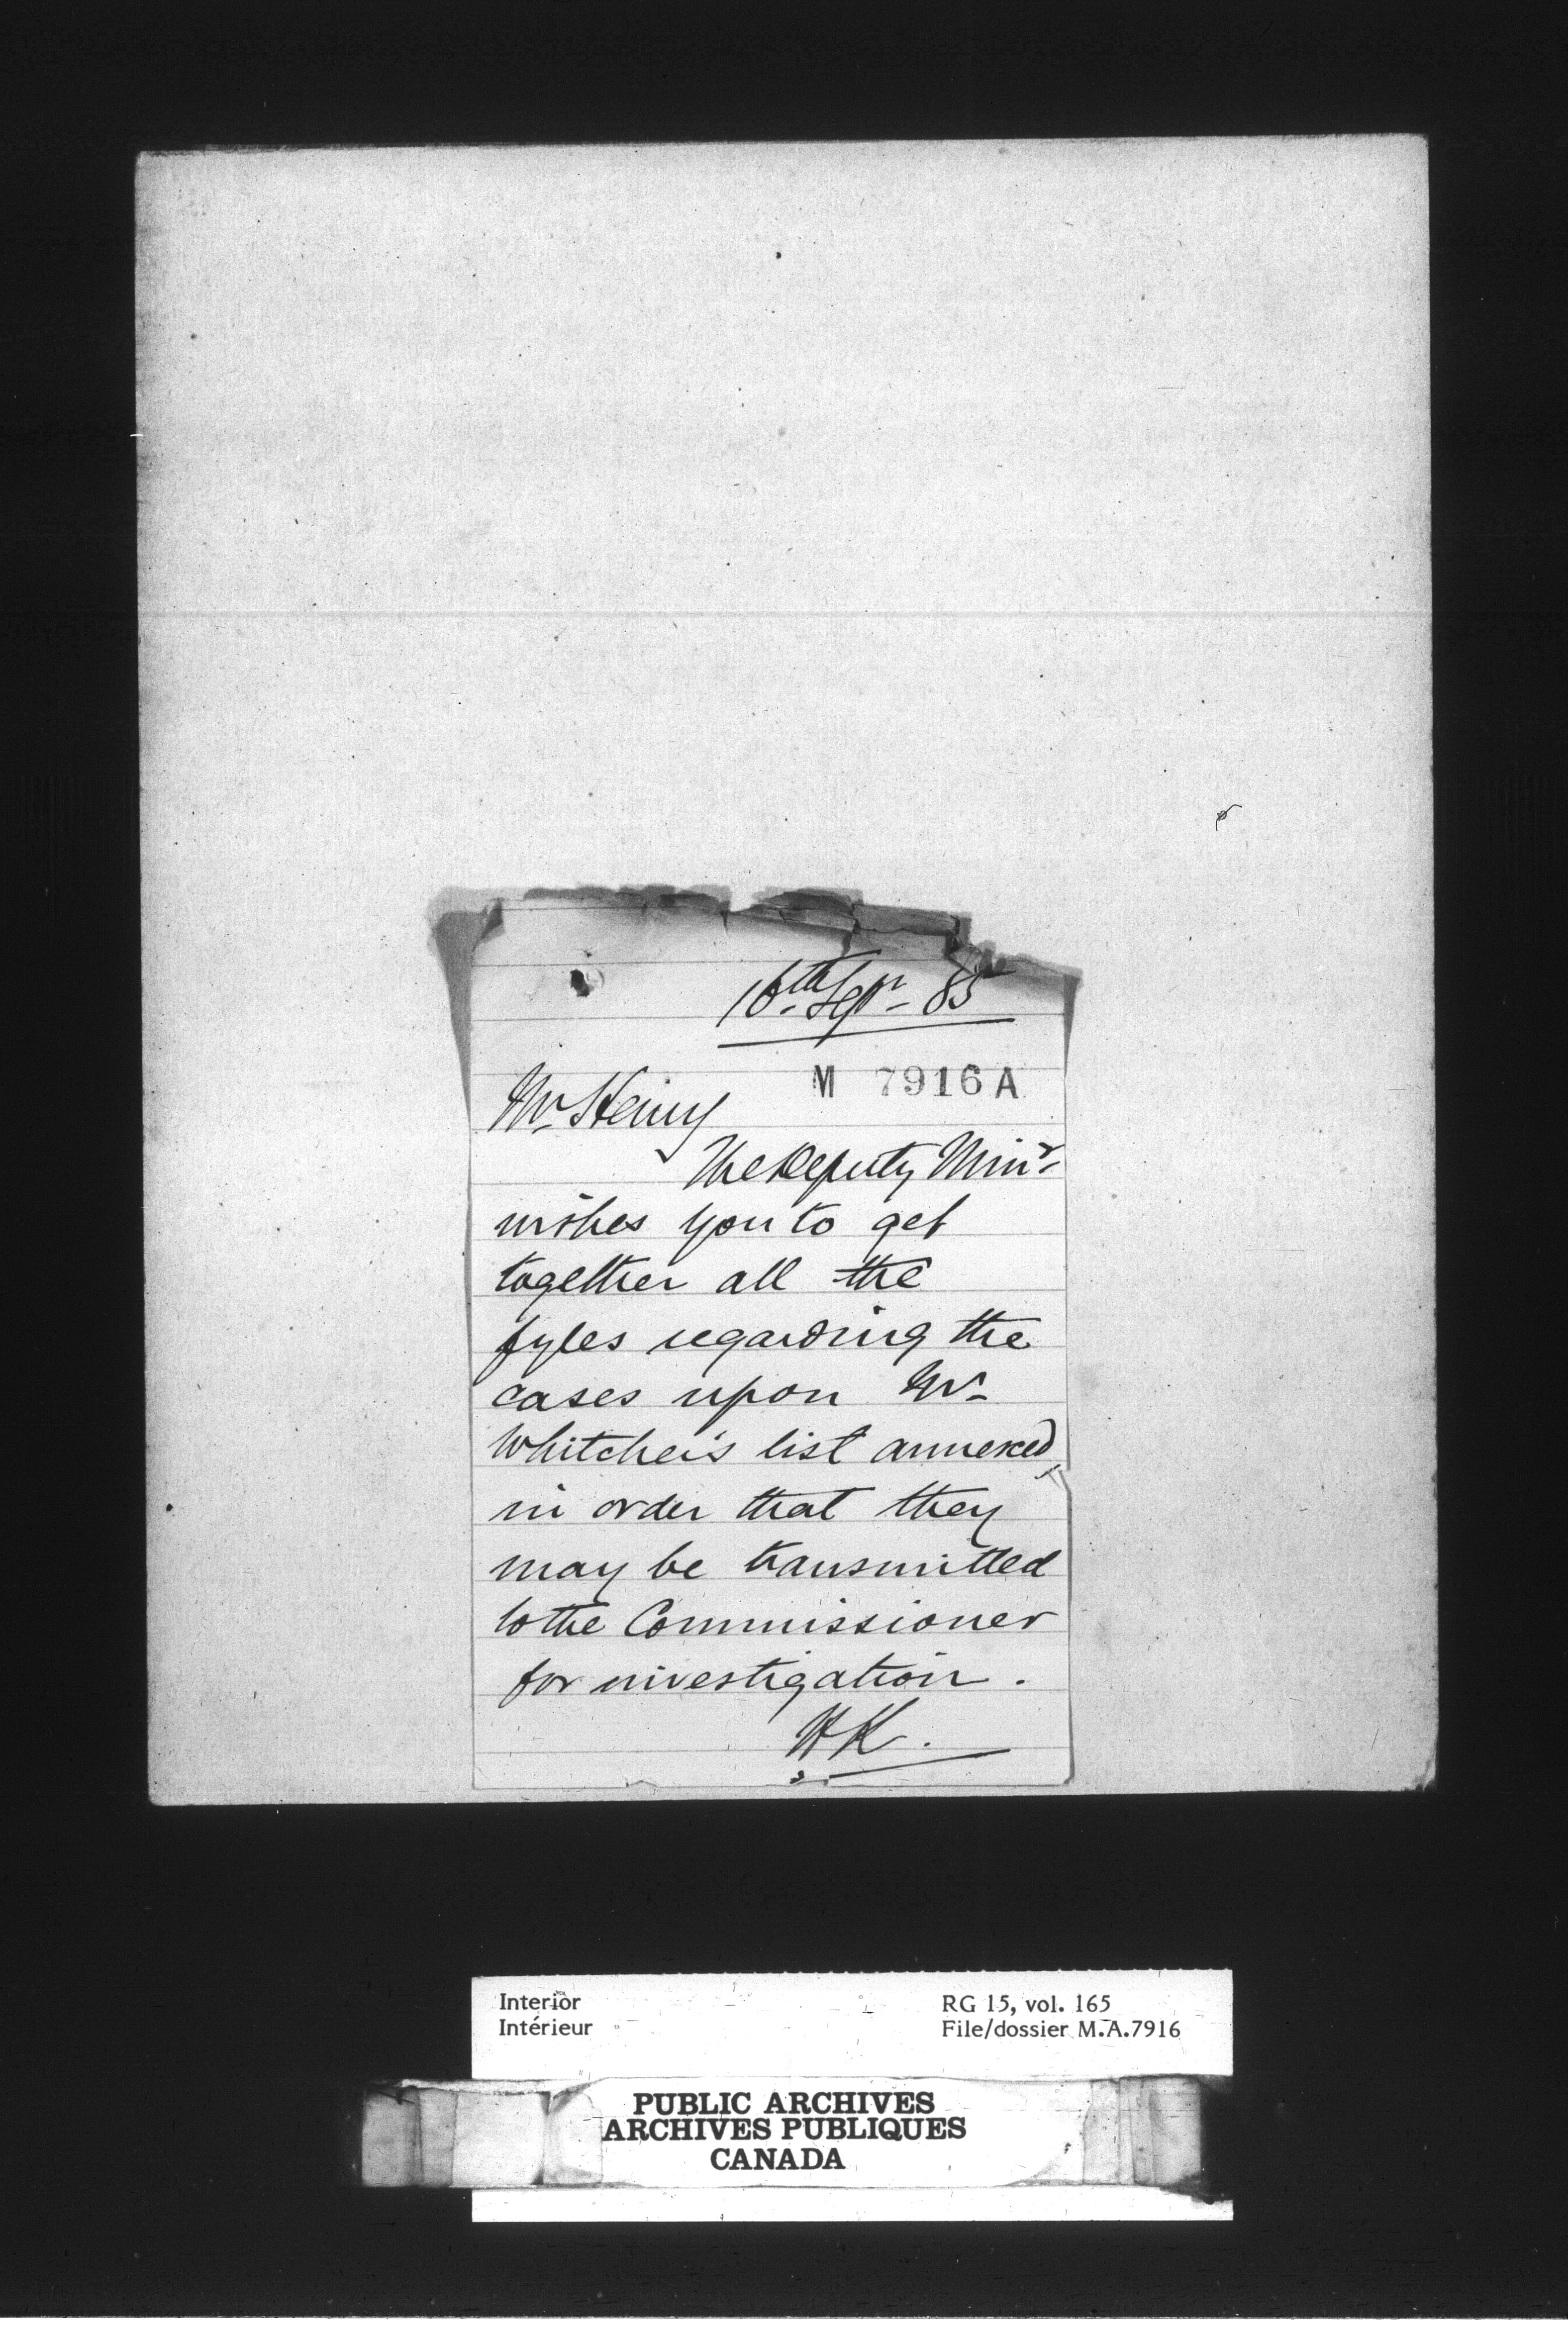 16th Sepr- 85
M 7916 A
Mr Henry
The Deputy Minr
wishes you to get
together all the
fyles regarding the
cases upon Mr
Whitcher's list annexed,
in order that they
may be transmitted
to the Commissioner
for investigation.
HK.
Interior
Intérieur
RG 15, vol. 165
File/dossier M.A.7916
PUBLIC ARCHIVES
ARCHIVES PUBLIQUES
CANADA